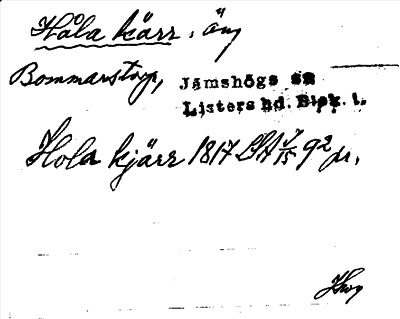 Håla kärr, äng
Bommarstorp,
Jämshögs sn
Listers hd. Blek. l.
Hola kjärr 1817 LSA 7/15 92